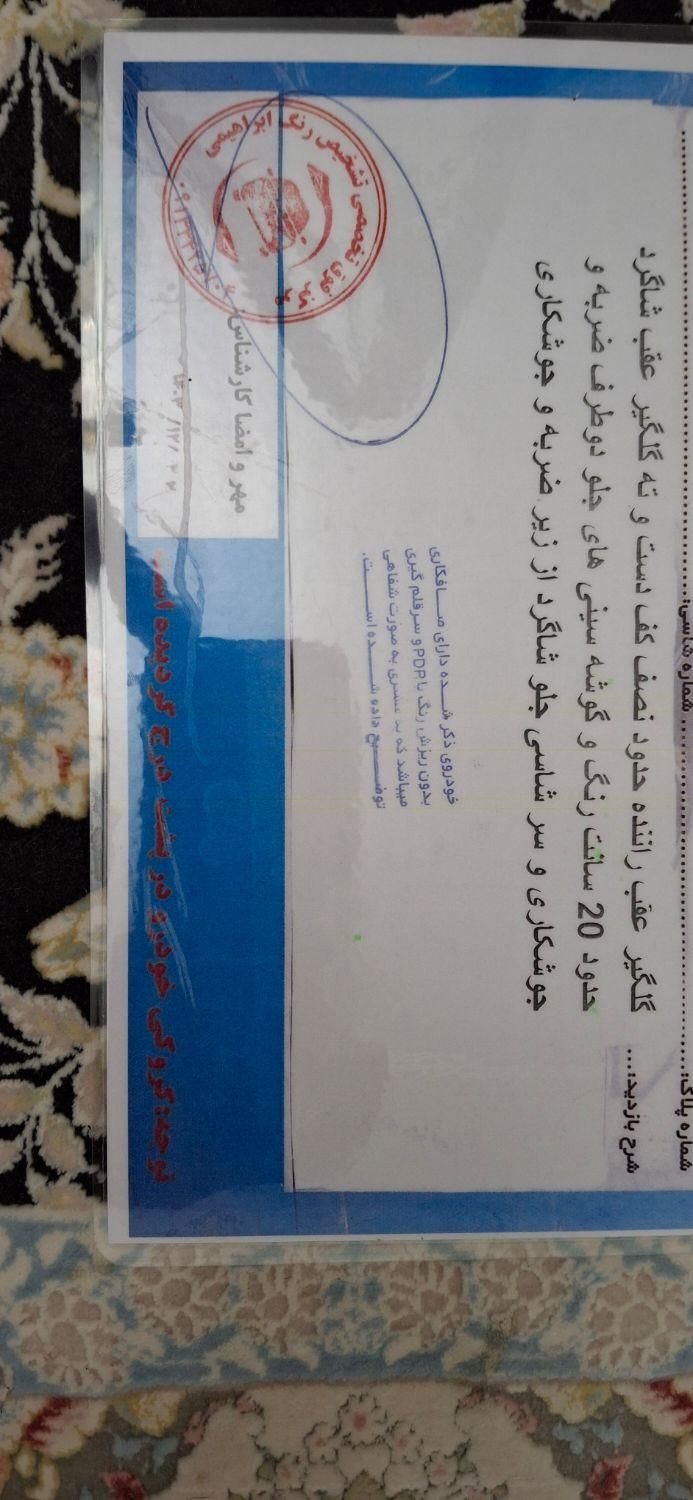 شماره پلاک:.......... شماره شاسی:..........
شرح بازدید:...
گلگیر عقب راننده حدود نصف کف دست و ته گلگیر عقب شاگرد
حدود 20 سانت رنگ و گوشه سینی های جلو دوطرف ضربه و
جوشکاری و سر شاسی جلو شاگرد از زیر ضربه و جوشکاری
خودروی ذکر شده دارای صافکاری
بدون ریزش رنگ یا PDP و سرقلم گیری
میباشد که به مشتری به صورت شفاهی
توضیح داده شده است.
مهر و امضا کارشناس:
مرکز فوق تخصصی تشخیص رنگ ابراهیمی
توجه:کروکی خودرو در پشت درج گردیده است.